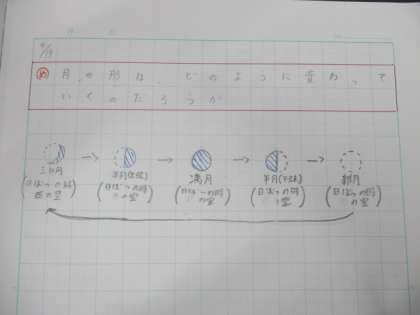 9/19
め 月の形は、どのように変わって
いくのだろうか
三日月
(日ぼつの時
西の空)
半月(上弦)
(日ぼつの時
の空)
満月
(日ぼつの時
の空)
半月(下弦)
(日ぼつの時
の空)
新月
(日ぼつの時
の空)